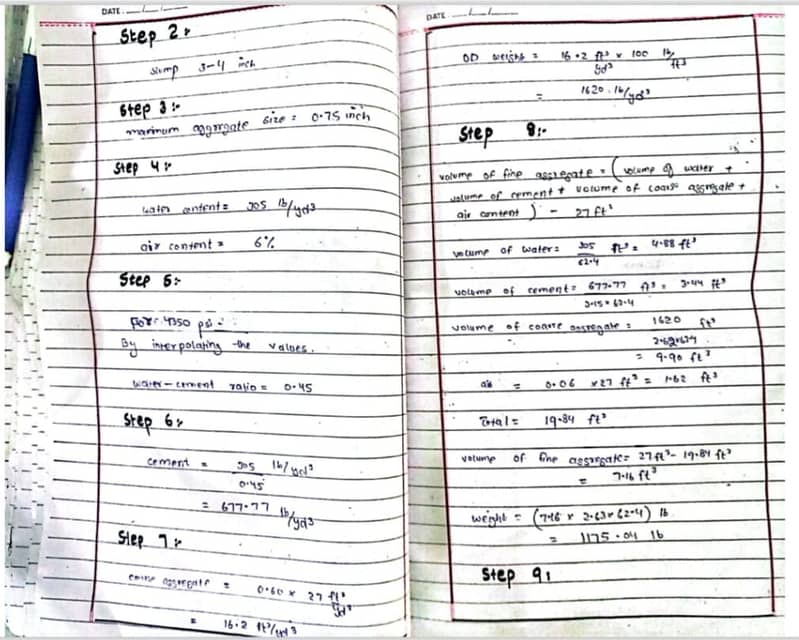 DATE
Step 2:
Slump 3-4 inch
Step 3:-
maximum aggregate size = 0.75 inch
Step 4:
water content = 305 lb/yd3
air content = 6%
Step 5:-
For 4350 psi
By interpolating the values.
water-cement ratio = 0.45
Step 6:
cement = 305 lb/yd3
0.45
= 677.77 lb/yd3
Step 7:
coarse aggregate = 0.60 x 27 ft3
yd3
= 16.2 ft3/yd3
DATE
OD weight = 16.2 ft3 x 100 lb/ft3
yd3
= 1620 lb/yd3
Step 8:-
volume of fine aggregate = (volume of water +
volume of cement + volume of coarse aggregate +
air content) - 27 ft3
volume of water = 305 ft3 = 4.88 ft3
62.4
volume of cement = 677.77 ft3 = 3.44 ft3
3.15 x 62.4
volume of coarse aggregate = 1620 ft3
= 9.90 ft3
air = 0.06 x 27 ft3 = 1.62 ft3
Total = 19.84 ft3
volume of fine aggregate = 27 ft3 - 19.84 ft3
= 7.16 ft3
weight = (7.16 x 2.63 x 62.4) lb
= 1175.04 lb
Step 9: